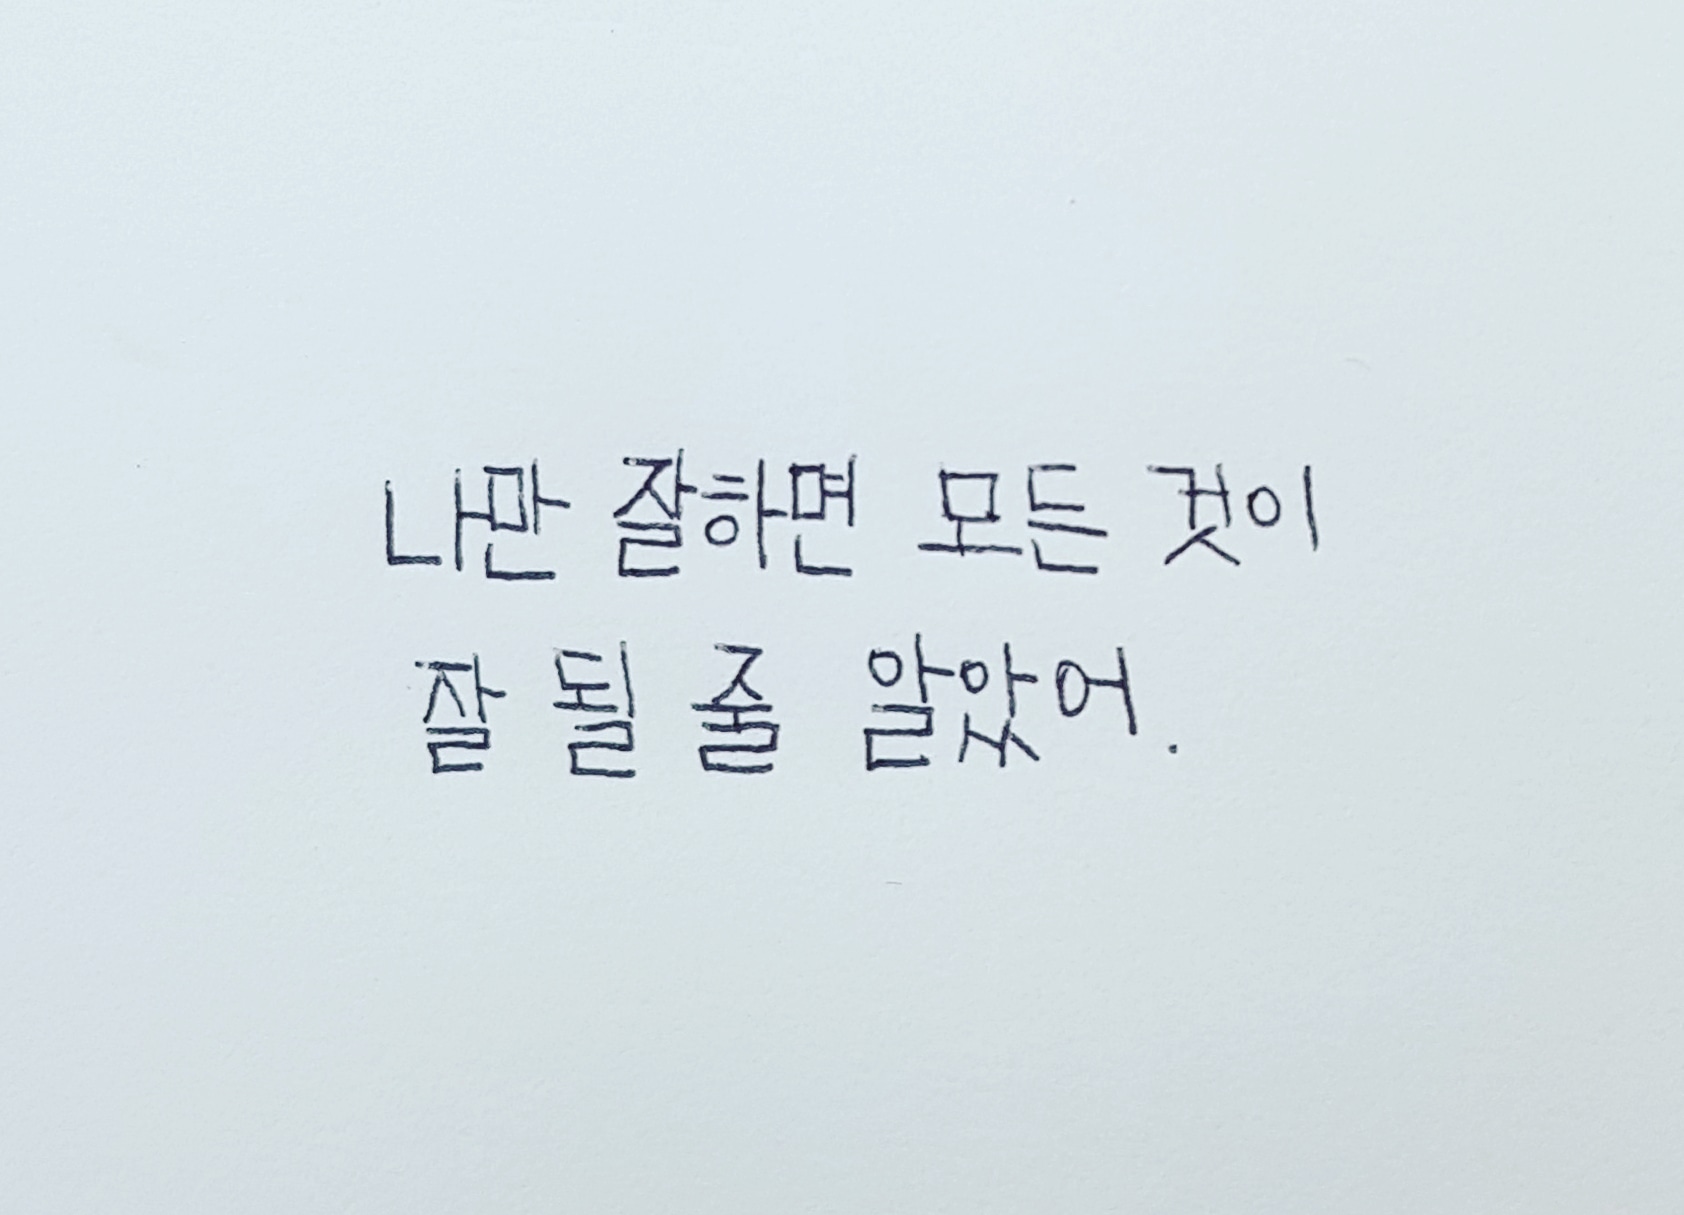 나만 잘하면 모든 것이
잘 될 줄 알았어.